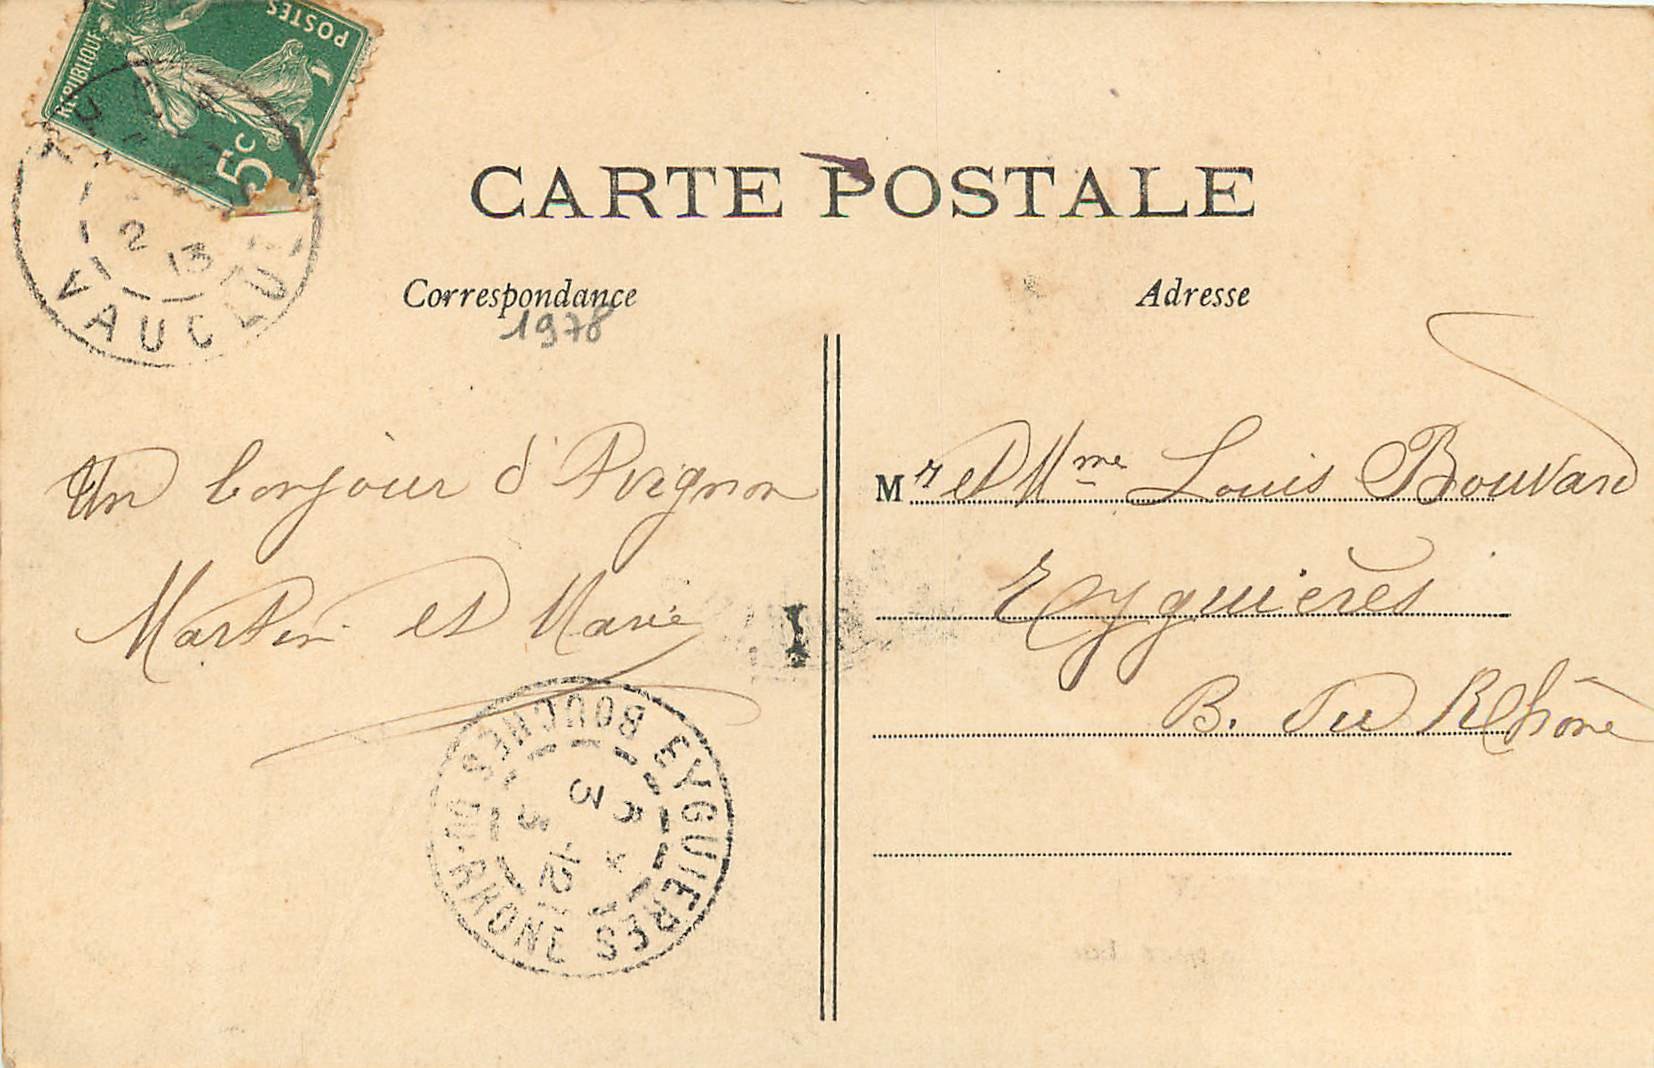 RÉPUBLIQUE
POSTES
5c
2 13
VAUCLU
CARTE POSTALE
Correspondance
1978
Un bonjour d'Avignon
Martin et Marie
EYGUIERES
BOUCHES DU-RHONE
3
12
I
Adresse
Mr et Mme Louis Bouvard
Eyguières
B. du Rhône